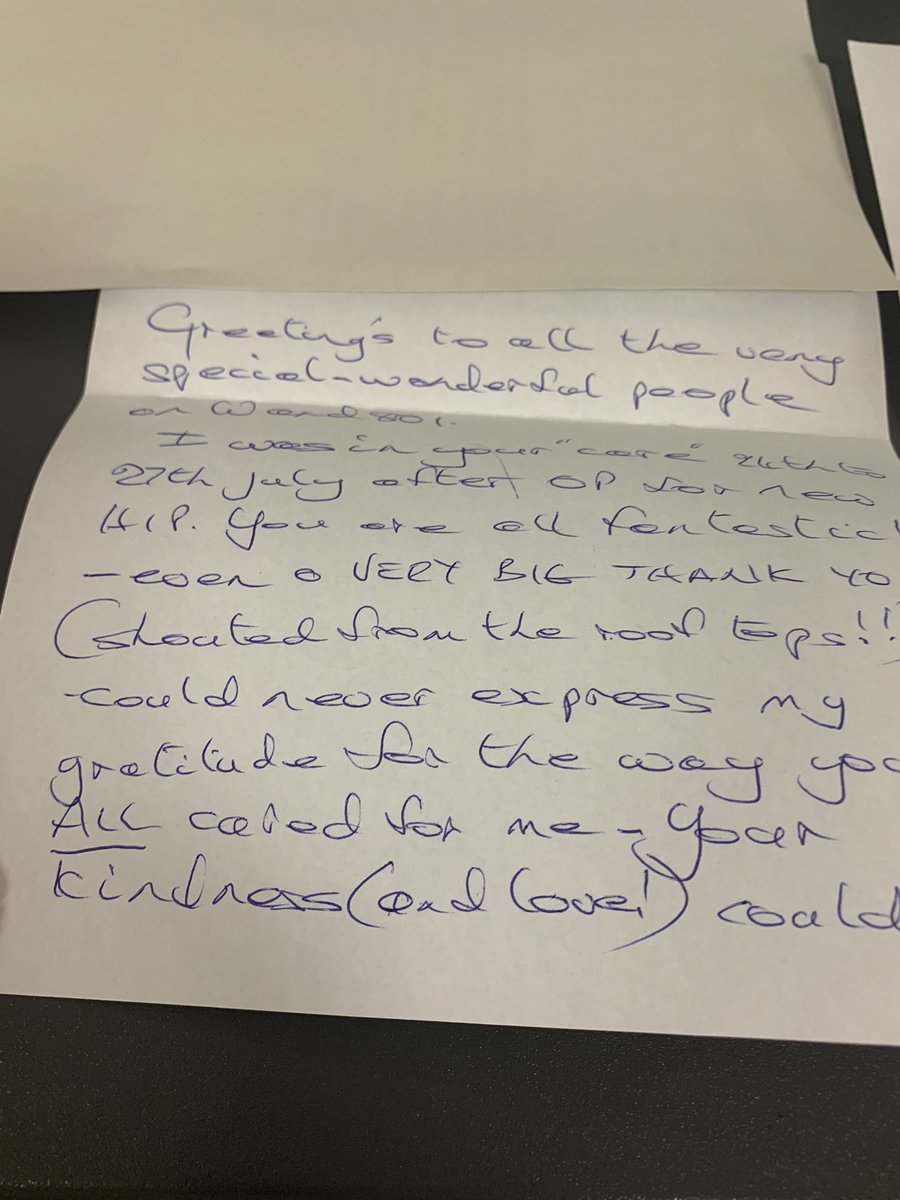 Greeting's to all the very
special-wonderful people
on Ward 801.
I was in your "care" 24th to
27th July after OP for new
HIP. You are all fantastic!
- even a VERY BIG THANK YO
(shouted from the roof tops!!)
- could never express my
gratitude for the way you
ALL cared for me - Your
kindness (and love!) could